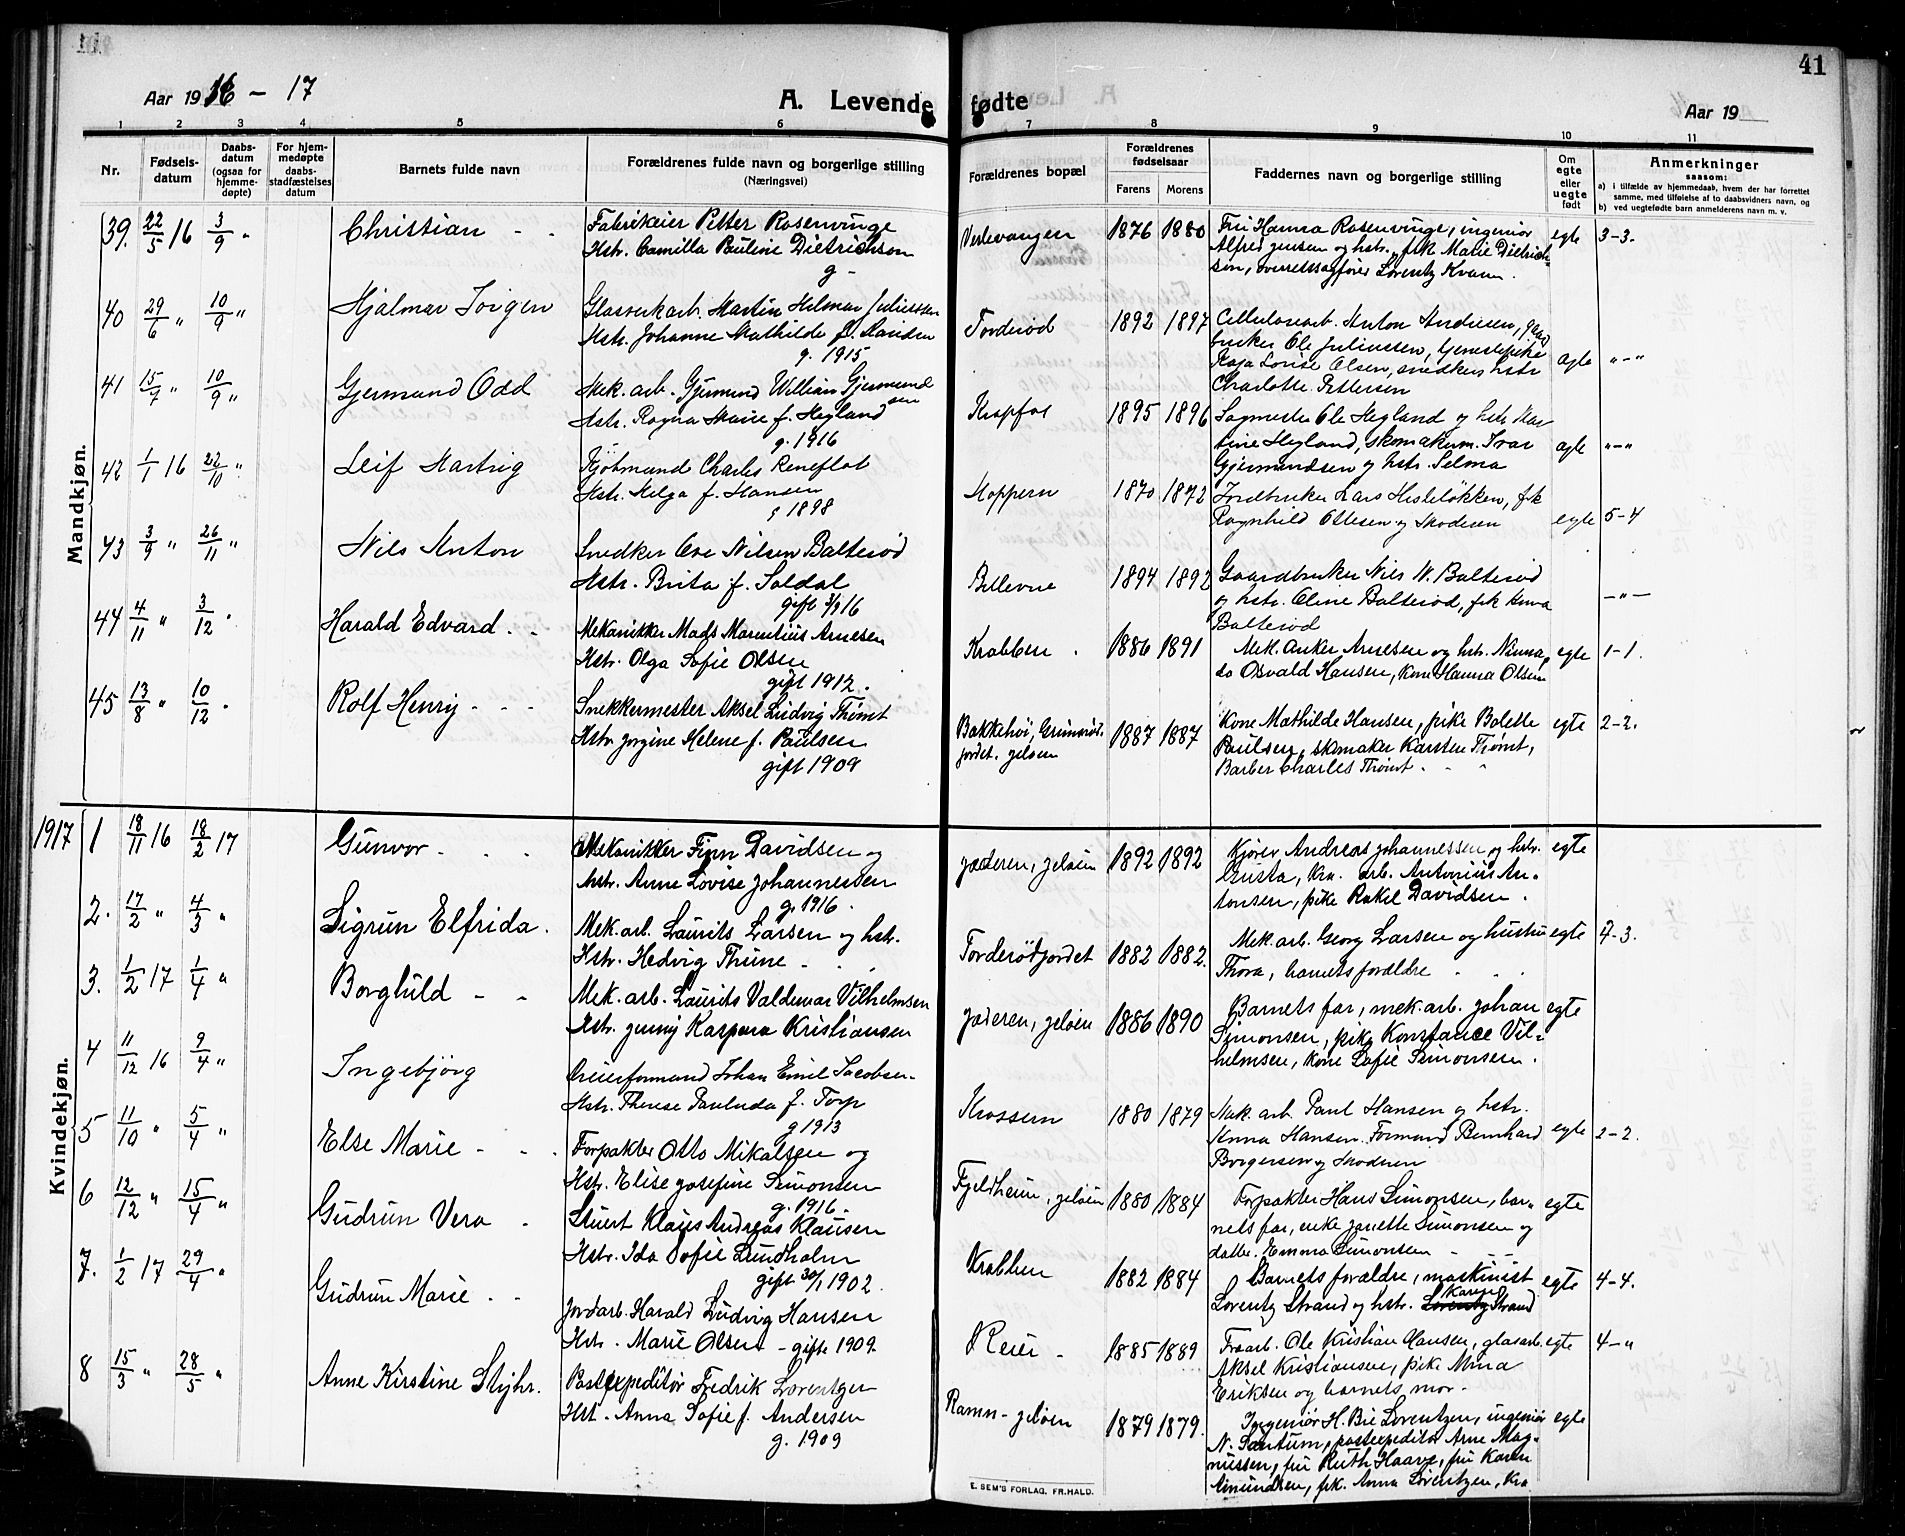 41
Aar 1916 – 17
A. Levende fødte
Aar 19
1 2 3 4 5 6 7 8 9 10 11
Nr.
Fødsels-
datum
Daabs-
datum
(ogsaa for
hjemme-
døpte)
For hjem-
medøpte
daabs-
stadfæstelses
datum
Barnets fulde navn
Forældrenes fulde navn og borgerlige stilling
(Næringsvei)
Forældrenes bopæl
Forældrenes
fødselsaar
Farens Morens
Faddernes navn og borgerlige stilling
Om
egte
eller
uegte
født
Anmerkninger
saasom:
a) i tilfælde av hjemmedaab, hvem der har forrettet
samme, med tilføielse af to daabsvidners navn, og
b) ved uegtefødte barn anmelderens navn m. v.
Mandkjøn.
39. 22/5 16 3/9 "
Christian
Fabrikeier Petter Rosenvinge
Hstr. Camilla Pauline Dietrichson
g –
1876 1880
Fru Hanna Rosenvinge, ingeniør
Alfred Jensen og hstr., frk Marie Dietrich-
son, overretssagfører Lorentz Kvam.
egte 3–3.
40 29/6 " 10/9 "
Hjalmar Jørgen
Glasverkarb. Martin Hilmar Juliussen
Hstr. Johanne Mathilde f. Davidsen
g. 1915
Torderød
1892 1897
Cellulosearb. Anton Andresen, gaard
bruker Ole Juliussen, tjenestepike
Kaja Lovise Olsen, snedkers hstr
Charlotte Pettersen
egte "–"
41 15/7 " 10/9 "
Gjermund Odd
Mek. arb. Gjermund William Gjermund
sen
Hstr. Ragna Marie f. Hegland
g. 1916
Krapfos
1895 1896
Sagmester Ole Hegland og hstr. Mar
tine Hegland, skomakerm. Ivar
Gjermundsen og hstr. Selma
egte "–"
42 1/1 16 22/10 "
Leif Hartvig
Kjøbmand Charles Reneflot
Hstr. Helga f. Hansen
g 1898
Moppern
1870 1872
Jordbruker Lars Hesteløkken, frk
Ragnhild Ottesen og Moderen
egte 5–4
43 3/9 " 26/11 "
Nils Anton
Snedker Ove Nilsen Balterød
Hstr. Brita f. Soldal
gift 3/9 16
Bellevue
1894 1892
Gaardbruker Nils W. Balterød
og hstr. Oline Balterød, frk Anna
Balterød
–"–
44 4/11 " 3/12 "
Harald Edvard
Mekanikker Mads Marentius Arnesen
Hstr. Olga Sofie Olsen
gift 1912.
Krabben
1886 1891
Mek. Anker Arnesen og hstr. Ninna,
do Osvald Hansen, kone Hanna Olsen
egte 1–1.
45 13/8 " 10/12 "
Rolf Henry
Snekkermester Aksel Ludvig Thømt
Hstr. Jorgine Helene f. Paulsen
gift 1909
Bakkehøi, Grimsrød-
jordet. Jeløen
1887 1887
Kone Mathilde Hansen, pike Bolette
Paulsen, skomaker Karsten Thømt,
Barber Charles Thømt
egte 2–2.
Kvindekjøn.
1917
1 18/11 16 18/2 17
Gunvor
Mekanikker Finn Davidsen og
hstr. Anne Lovise Johannessen
g. 1916.
Jæderen, Jeløen
1892 1892
Kjører Andreas Johannessen og hstr.
Gusta, Kra. arb. Antonius An-
tonsen, pike Rakel Davidsen.
egte
2. 17/2 " 4/3 "
Sigrun Elfrida.
Mek. arb. Laurits Larsen og hstr.
Hstr. Hedvig Thune
Torderødjordet
1882 1882.
Mek. arb. Georg Larsen og hustru
Thora, barnets forældre
egte 4–3.
3. 1/2 17 1/4 "
Borghild
Mek. arb. Laurits Valdemar Vilhelmsen
Hstr. Jenny Kaspara Kristiansen
Jæderen, Jeløen
1886 1890
Barnets far, mek. arb. Johan
Simonsen, pike Konstance Vil-
helmsen, kone Sofie Simonsen.
egte
4 11/12 16 9/4 "
Ingebjørg
Oreierformand Johan Emil Jacobsen
Hstr. Therese Paulauda f. Torp
g 1913
Krossern
1880 1879
Mek. arb. Paul Hansen og hstr.
Anna Hansen. Formand Bernhard
Borgersen og Moderen
egte 2–2.
5 11/10 " 5/4 "
Else Marie
Forpakter Otto Mikalsen og
Hstr. Elise Josefine Simonsen
g. 1916.
Fjeldheim, Jeløen
1880 1884
Forpakter Hans Simonsen, bar-
nets far, enke Janette Simonsen og
datter Emma Simonsen
egte
6 12/12 " 15/4 "
Gudrun Vera
Stuert Klaus Andreas Klausen
Hstr. Ida Sofie Lundholm
gift 30/1 1902.
Krabben
1882 1884
Barnets forældre, maskinist
Lorentz Strand og hstr. Karen Strand
egte 4–4.
7. 1/2 17 29/4 "
Gudrun Marie
Jordarb. Harald Ludvig Hansen
Hstr. Marie Olsen – gift 1909.
Reier
1885 1889
Ole Kristian Hansen, glasarb.
Aksel Kristiansen, pike Mina
Eriksen og barnets mor.
egte 4–"
8 15/3 " 28/5 "
Anne Kirstine Styhr.
Postexpeditør Fredrik Lorentzen
Hst. Anna Sofie f. Andersen
g. 1909
Ramn – Jeløen
1879 1879.
Ingeniør H. Bie Lorentzen, ingeniør
N. Santum, postexpeditør Arne Mag-
nussen, fru Ruth Haave, fru Karen
Amundsen, frk. Anna Lorentzen, Kra
egte
E. SEM'S FORLAG, FR.HALD.